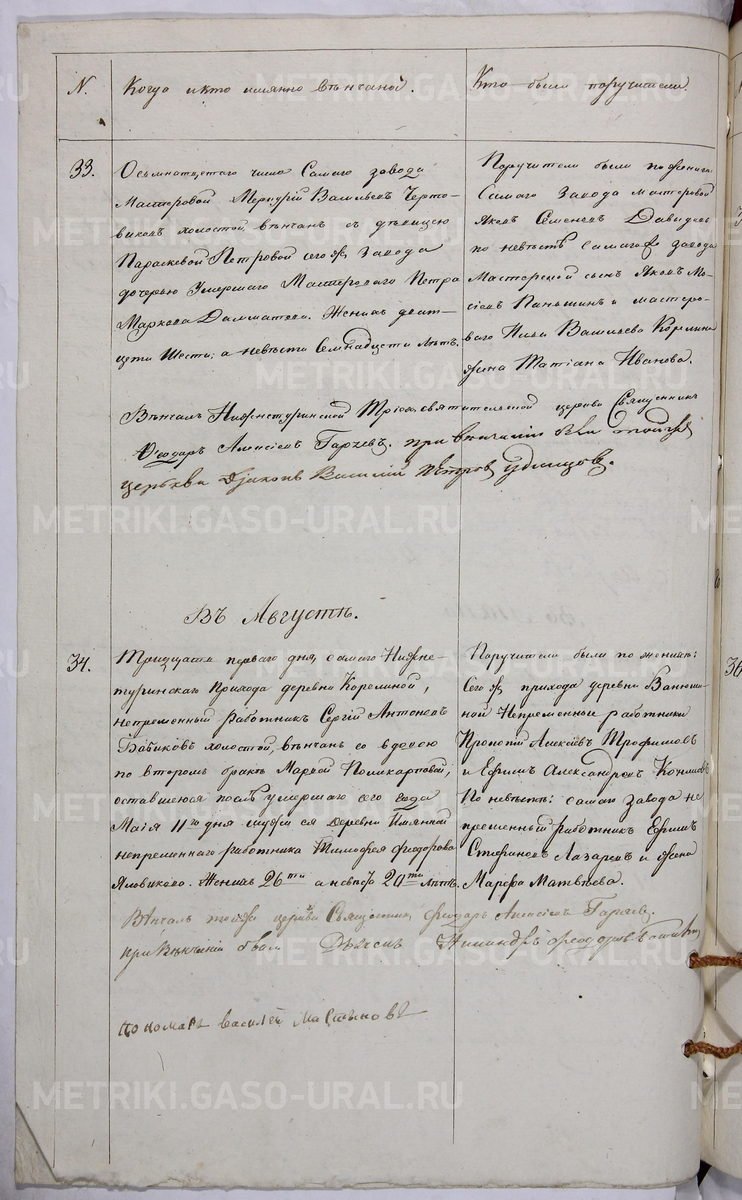 N.
Когда и кто имянно вѣнчаной.
Кто были поручители.
33.
Осьмнатцетаго числа Самаго завода
Мастеровой Меркурій Васильевъ Черто-
виковъ холостой, вѣнчанъ съ дѣвицею
Параскевой Петровой сего ж завода
дочерью умершаго Мастероваго Петра
Маркова Далматова. Женихъ дват-
цети Шести, а невѣста Семнадцети лѣтъ.
Поручители были по женихѣ
Самаго Завода мастеровой
Яковъ Семеновъ Давыдовъ
по невѣстѣ самаго завода
Мастерской сынъ Яковъ Мо-
сіевъ Паньшинъ и мастеро-
ваго Ильи Васильева Корелина
жена Татіана Иванова.
Вѣнчалъ Нижнетуринской Трiохсвятительской церкви Священникъ
Ѳеодоръ Алексіевъ Гаряевъ, при вѣнчаніи былъ тойже
церькви Дьяконъ Василій Петровъ Удинцовъ.
Въ Августѣ.
34.
Тритцать перваго дня, самаго Нижне-
туринскаго Прихода деревни Корелиной,
непременный работникъ Сергій Антоновъ
Бабиковъ холостой, вѣнчанъ со вдовою
по второмъ бракѣ Марѳой Поликарповой,
оставшеюся послѣ умершаго сего года
Маія 11го дня мужа ея деревни Имянной
непременнаго работника Тимофея Федорова
Женихъ 26ти а невѣста 20ти лѣтъ.
Поручители были по женихѣ:
Сего ж прихода деревни Ваньши-
ной Непременные работники
Прокопій Алексіевъ Трофимовъ
и Ефимъ Александровъ
По невѣстѣ: самаго завода не-
пременный работникъ Ефимъ
Стефановъ Лазаревъ и жена
Марѳа Матвѣева.
Вѣнчалъ тойже церкви Священникъ Феодоръ Алексіевъ Гаряевъ.
при Вѣнчаніи были Дьячекъ Никандръ Феодоровъ
пономарь василей Мартыновъ
METRIKI.GASO-URAL.RU
METRIKI.GASO-URAL.RU
METRIKI.GASO-URAL.RU
METRIKI.GASO-URAL.RU
METRIKI.GASO-URAL.RU
METRIKI.GASO-URAL.RU
METRIKI.GASO-URAL.RU
METRIKI.GASO-URAL.RU